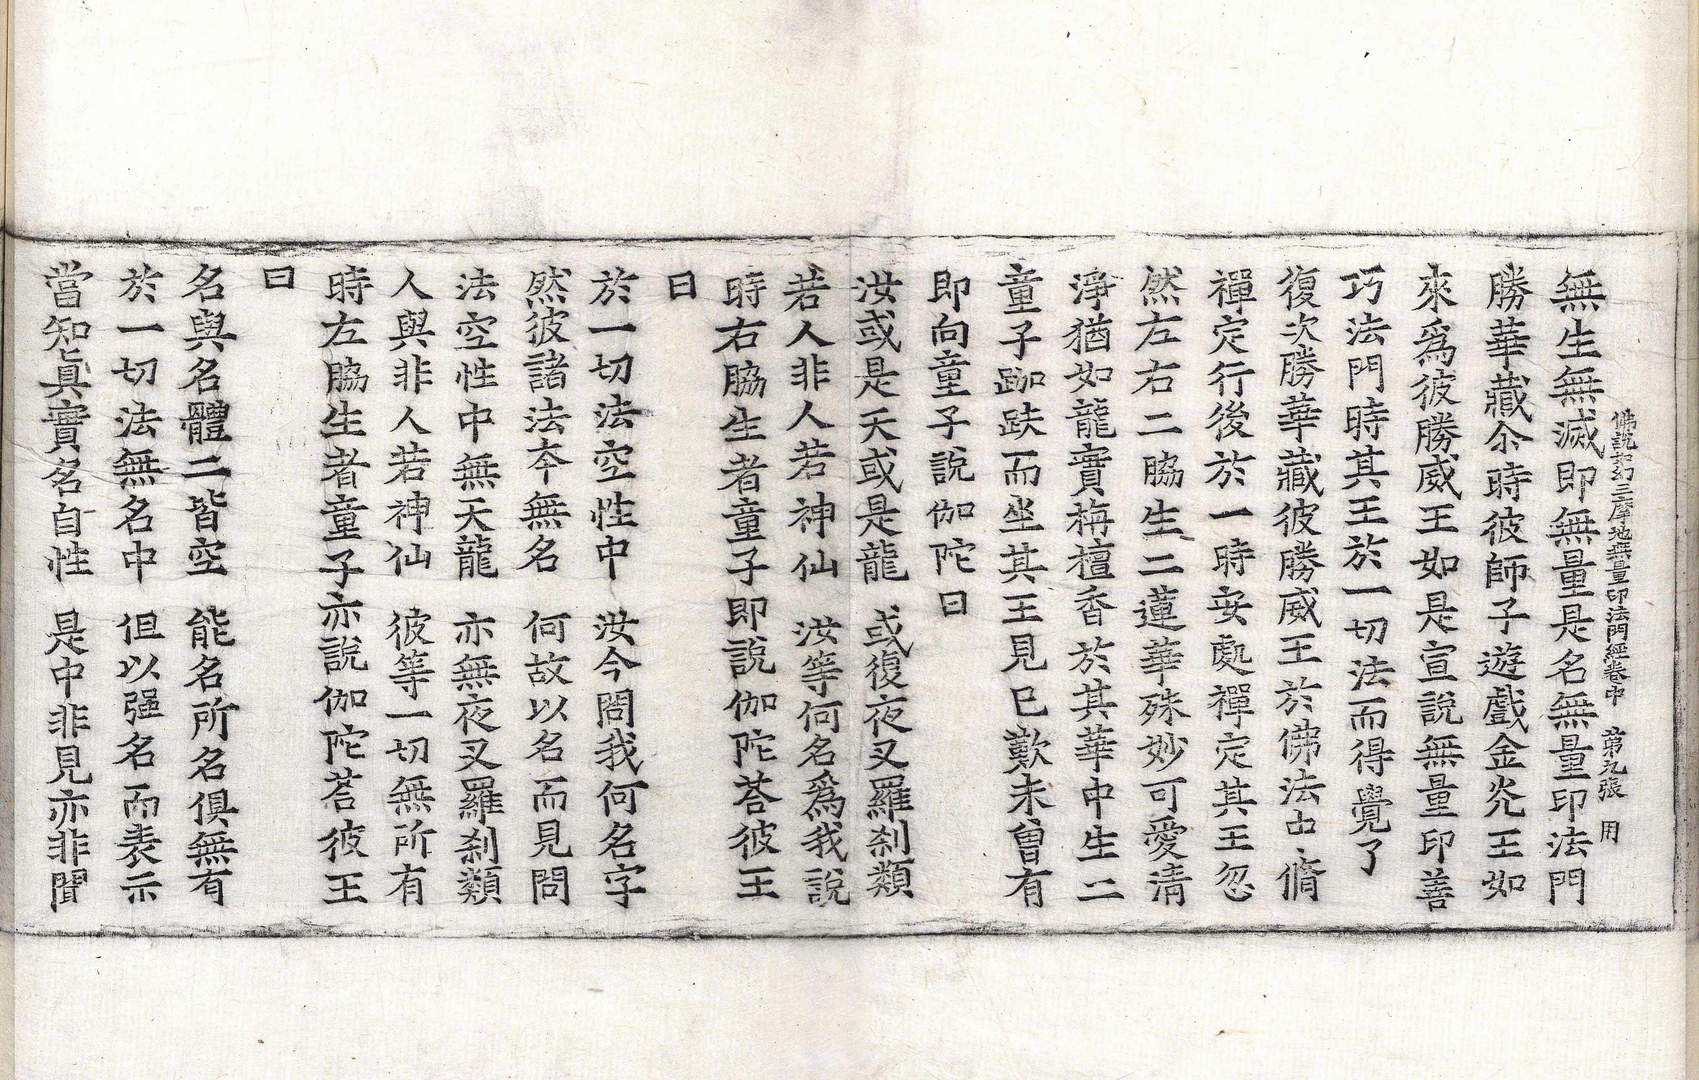 佛說如幻三摩地無量印法門經卷中　第九張　用
無生無滅即無量是名無量印法門
勝華藏尒時彼師子遊戲金光王如
來爲彼勝威王如是宣說無量印善
巧法門時其王於一切法而得覺了
復次勝華藏彼勝威王於佛法中脩
禪定行後於一時安處禪定其王忽
然左右二脇生二蓮華殊妙可愛清
淨猶如龍實栴檀香於其華中生二
童子跏趺而坐其王見已歎未曾有
即向童子說伽陀曰
汝或是天或是龍　或復夜叉羅刹類
若人非人若神仙　汝等何名爲我說
時右脇生者童子即說伽陀荅彼王
曰
於一切法空性中　汝今問我何名字
然彼諸法夲無名　何故以名而見問
法空性中無天龍　亦無夜叉羅刹類
人與非人若神仙　彼等一切無所有
時左脇生者童子亦說伽陀荅彼王
曰
名與名體二皆空　能名所名俱無有
於一切法無名中　但以强名而表示
當知眞實名自性　是中非見亦非聞